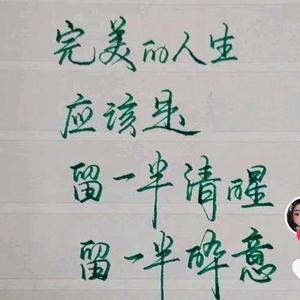 完美的人生
应该是
留一半清醒
留一半醉意